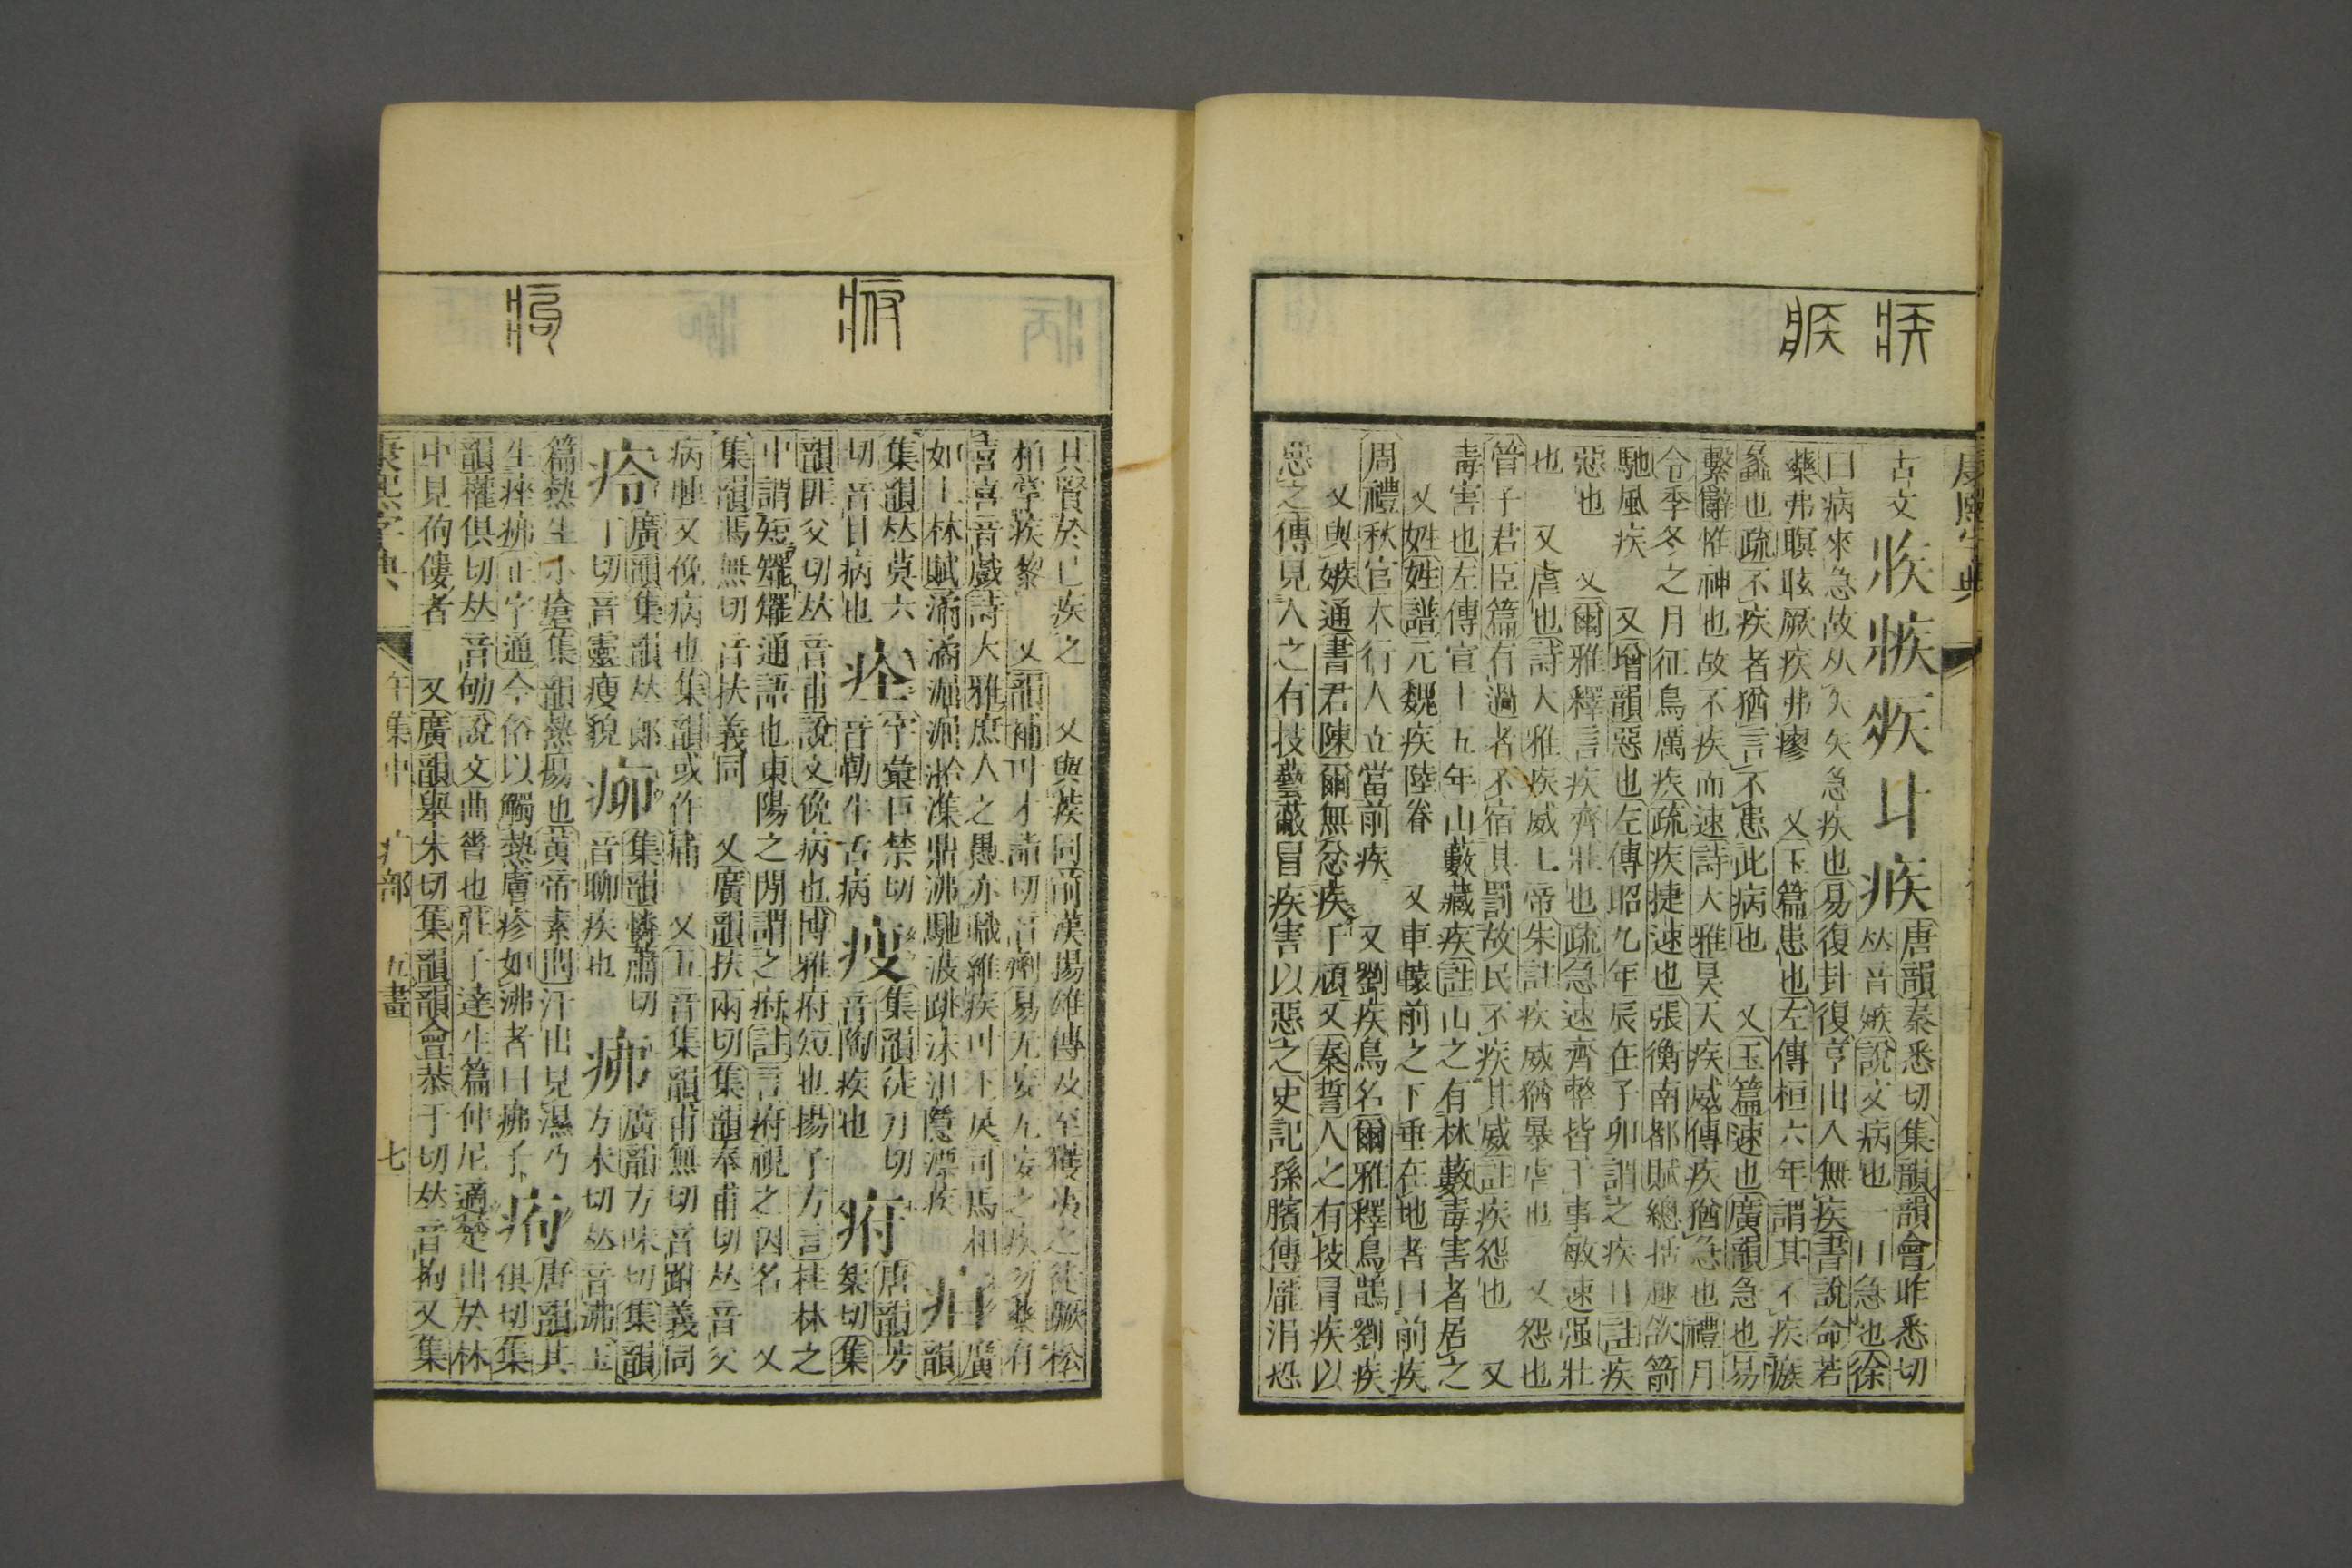 康熙字典
古文𤕺𤶅𥏹廿疾唐韻秦悉切集韻韻會昨悉切
𠀤音嫉說文病也一曰急也徐
曰病來急故从矢矢急疾也易復卦復亨出入無疾書說命若
藥弗瞑眩厥疾弗瘳 又玉篇患也左傳桓六年謂其不疾瘯
蠡也疏不疾者猶言不患此病也 又玉篇速也廣韻急也易
繫辭惟神也故不疾而速詩大雅昊天疾威傳疾猶急也禮月
令季冬之月征鳥厲疾疏疾捷速也張衡南都賦總括趣欱箭
馳風疾 又增韻惡也左傳昭九年辰在子卯謂之疾日註疾
惡也 又爾雅釋言疾齊壯也疏急速齊整皆于事敏速强壯
也 又虐也詩大雅疾威上帝朱註疾威猶暴虐也 又怨也
管子君臣篇有過者不宿其罰故民不疾其威註疾怨也 又
毒害也左傳宣十五年山藪藏疾註山之有林藪毒害者居之
又姓姓譜元魏疾陸眷 又車轅前之下垂在地者曰前疾
周禮秋官大行人立當前疾 又劉疾鳥名爾雅釋鳥鵱劉疾
又與嫉通書君陳爾無忿疾于頑又秦誓人之有技冒疾以
惡之傳見人之有技藝蔽冒疾害以惡之史記孫臏傳龐涓恐
其賢於己疾之 又與蒺同前漢揚雄傳及至獲夷之徒蹶松
柏掌疾藜 又韻補叶才詣切音劑易无妄无妄之疾勿藥有
喜喜音戲詩大雅庶人之愚亦職維疾叶下戾司馬相
如上林賦滴滴淈淈湁潗鼎沸馳波跳沫汨㵫漂疾 疳廣韻
集韻𠀤莫六
切音目病也 㽾字彙巨禁切
音勒牛舌病 㾄集韻徒刀切
音陶疾也 㾈唐韻芳
集切集
韻匪父切𠀤音甫說文俛病也博雅府短也揚子方言桂林之
中謂短矲矲通語也東陽之閒謂之府註言府視之因名 又
集韻馮無切音扶義同 又廣韻扶雨切集韻奉甫切𠀤音父
病腫又俛病也集韻或作痡 又五音集韻甫無切音跗義同
㾉廣韻集韻𠀤郎
丁切音靈瘦貌 㽼集韻憐蕭切
音聊疾也 疿廣韻方味切集韻
方未切𠀤音沸玉
篇熱生小瘡集韻熱瘍也黃帝素問汗出見濕乃
生痤疿正字通今俗以觸熱膚疹如沸者曰疿子 痀唐韻其
俱切集
韻權俱切𠀤音劬說文曲脊也莊子達生篇仲尼適楚出於林
中見痀僂者 又廣韻舉朱切集韻韻會恭于切𠀤音拘又集
康熙字典 午集中 疒部 五畫 七